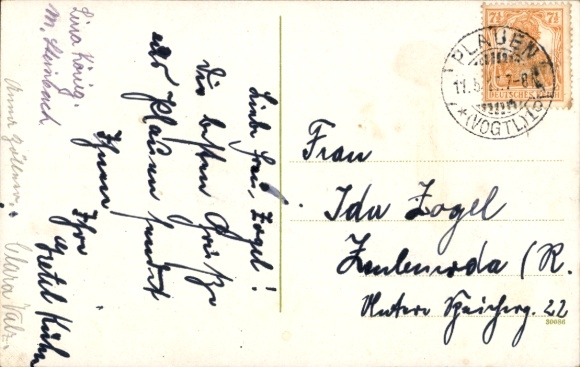 Liebe Frau Zogel!
Die besten Grüße
aus Plauen sendet
Ihnen
Ihre
Gretel Kühn
Lina König.
M. Steinbach
Anna
Clara
PLAUEN
11.5. 7-8
*(VOGTL)1
7½ 7½
DEUTSCHES
Frau
Ida Zogel
Zeulenroda (R.
Untere 22
30086